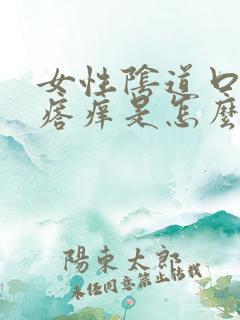 女性陰道口
瘩痒是怎麼
陽東太郎
未任同意禁止轉載